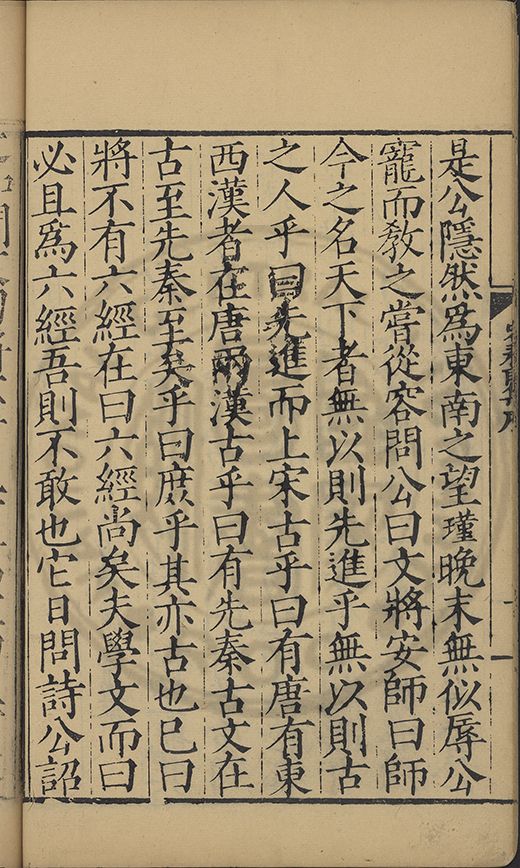 是公隱然爲東南之望瑾晚末無似辱公
寵而教之嘗從容問公曰文將安師曰師
今之名天下者無以則先進乎無以則古
之人乎曰先進而上宋古乎曰有唐有東
西漢者在唐兩漢古乎曰有先秦古文在
古至先秦至矣乎曰庶乎其亦古也已曰
將不有六經在曰六經尚矣夫學文而曰
必且爲六經吾則不敢也它日問詩公詔